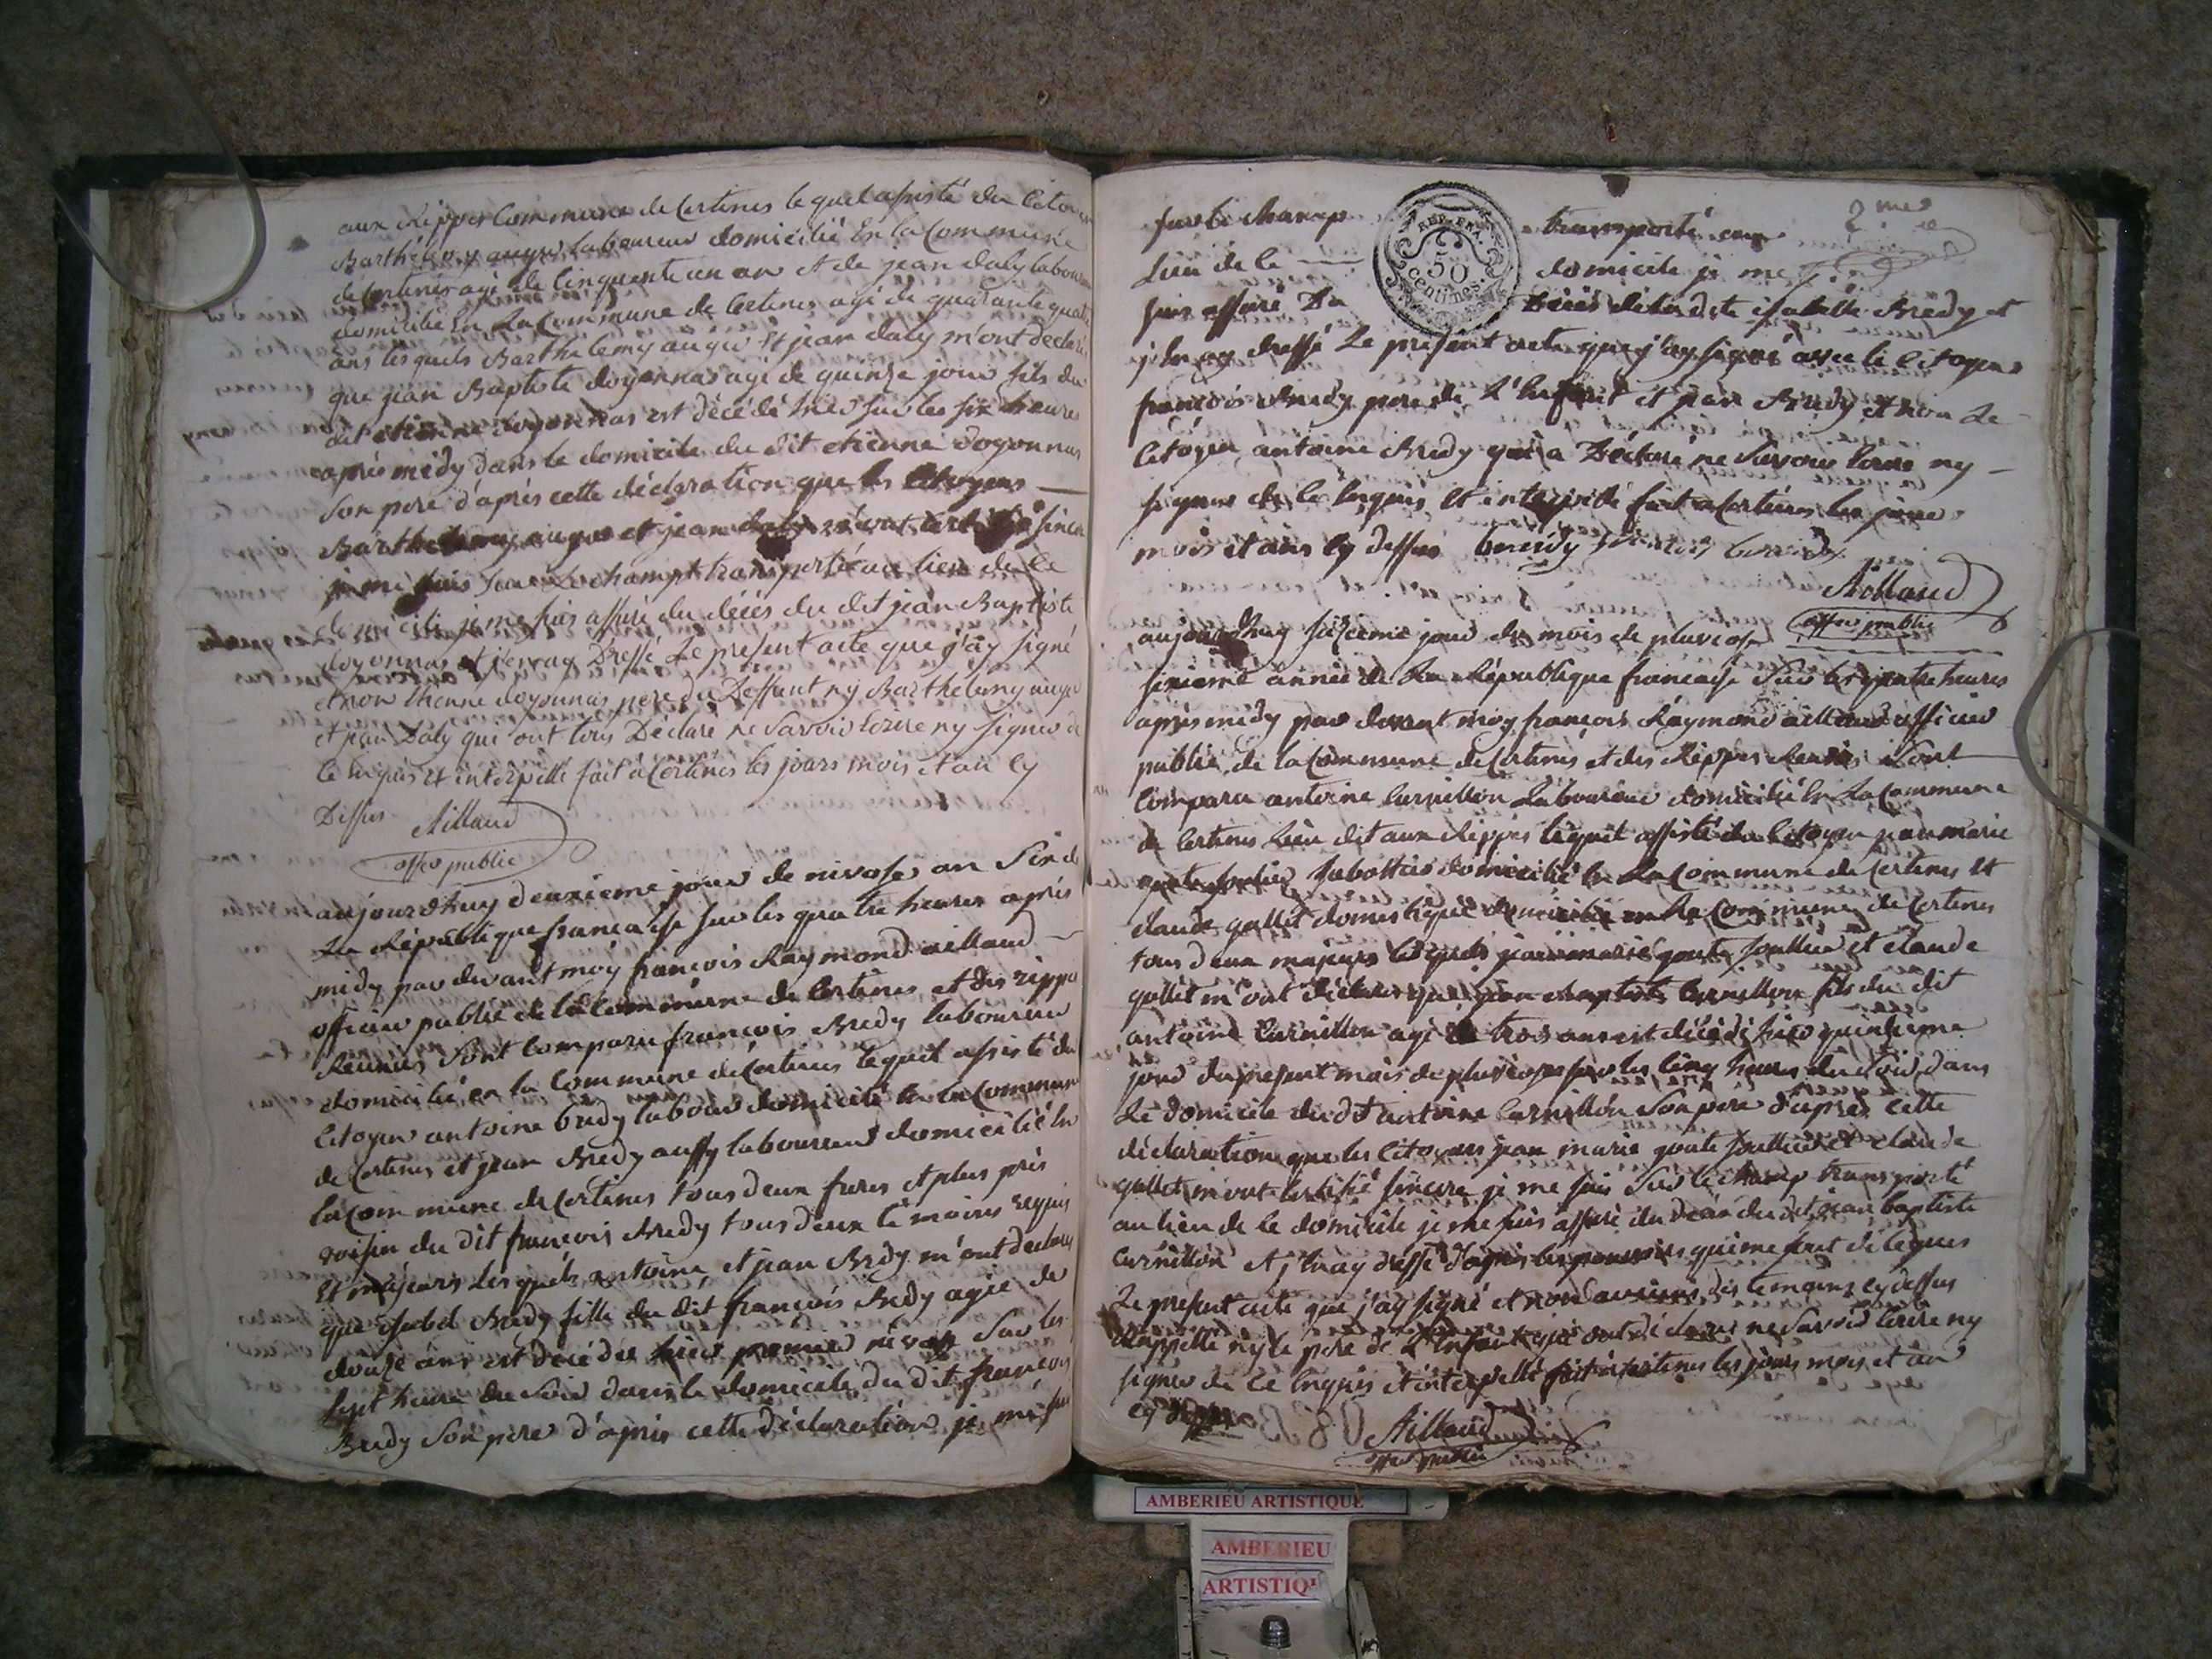 aux Rippes Commune de Certines le quel assisté du Citoyen
Barthélemy auyer laboureur domicilié En la Commune
de Certines agé de Cinquente un an et de jean daly laboureur
domicilié En La Commune de Certines agé de quarante quatre
ans lesquels Barthelemy auyer Et jean daly m'ont declaré
que jean Baptiste doyonnas agé de quinze jour fils du
dit etienne doyonnas est décédé hier sur les six heures
aprés midy Dans le domicile du dit etienne doyonnas
son pere d'aprés cette déclaration que les Citoyens
Barthelemy auyer et jean daly m'ont Certifié sincere
je me suis sur Le champt transporté au lieu de Ce
domicile je me suis assuré du décés du dit jean Baptiste
doyonnas et j'en ay Dressé Le present acte que j'ay signé
et non Etienne doyonnas pere du Deffunt ny Barthelemy auyer
et jean Daly qui ont tous Déclaré ne Savoir Ecrire ny signer de
Ce Enquis et interpellé fait a Certines les jours mois et an Cy
Dessus Aillaud
offer public
aujourdhuy deuxieme jour de nivose an Six de
La République francaise sur les quatre heures aprés
midy par devant moy francois Raymond aillaud
officier public de la Commune de Certines et des rippes
Reunies Sont Comparu francois Bredy laboureur
domicilié en la Commune de Certines lequel assisté du
Citoyen antoine bredy labour domicilié En la Commune
de Certines et jean Bredy aussy laboureur domicilié En
la Commune de Certines tous deux freres et plus prés
voisin du dit francois Bredy tous deux témoins requis
Et majeurs lesquels antoine et jean Bredy m'ont declaré
que isabel Bredy fille du dit francois Bredy agée de
douze ans est décédée hier premier nivose Sur les
sept heure du Soir dans le domicile du dit francois
Bredy Son pere d'aprés cette déclaration je me suis
sur le champ transporté au 2.me
Lieu de Ce domicile je me
suis assuré Du Décés de ladite isabelle Bredy et
j'En ay dressé Le present acte que j'ay signé avec le Citoyen
francois Bredy pere de L'Enfant et jean Bredy et non Le
Citoyen antoine Bredy qui a Déclaré ne Savoir Ecrire ny
signer de Ce Enquis Et interpellé fait a Certines les jour
mois et ans Cy dessus breidy
REP. FRA.
50
centimes
Aillaud
offer public
aujourdhuy seizieme jour du mois de pluviose
sixieme année de La République francaise Sur les quatre heures
aprés midy par devant moy francois Raymond aillaud officier
public de la Commune de Certines et des Rippes Reunies Sont
Comparu antoine Curnillon Laboureur domicilié En La Commune
de Certines Lieu dit aux Rippes lequel assisté du Citoyen jean marie
goute soullier Sabottier domicilié En La Commune de Certines Et
claude gallet domestique domicilié en La Commune de Certines
tous deux majeurs lesquels jean marie goute soullier et claude
gallet m'ont déclaré que jean baptiste Curnillon fils du dit
antoine Curnillon agé de trois ans est décédé hier quinzieme
jour du present mois de pluviose sur les Cinq heures du Soir dans
Le domicile dudit antoine Curnillon Son pere d'apres cette
déclaration que les Citoyens jean marie goute soullier et claude
gallet m'ont Certifié sincere je me suis Sur le champ transporté
au lieu de Ce domicile je me suis assuré du décés du dit jean baptiste
Curnillon et j'En ay dressé d'aprés les pouvoirs qui me sont delegués
Le present acte que j'ay signé et non aucuns des temoins cy dessus
Rappellé ny le pere de L'Enfant qui ont déclaré ne Savoir Ecrire ny
signer de Ce Enquis et interpellé fait a Certines les jours mois et an
cy dessus Aillaud
offer public
AMBERIEU ARTISTIQUE
AMBERIEU
ARTISTIQU